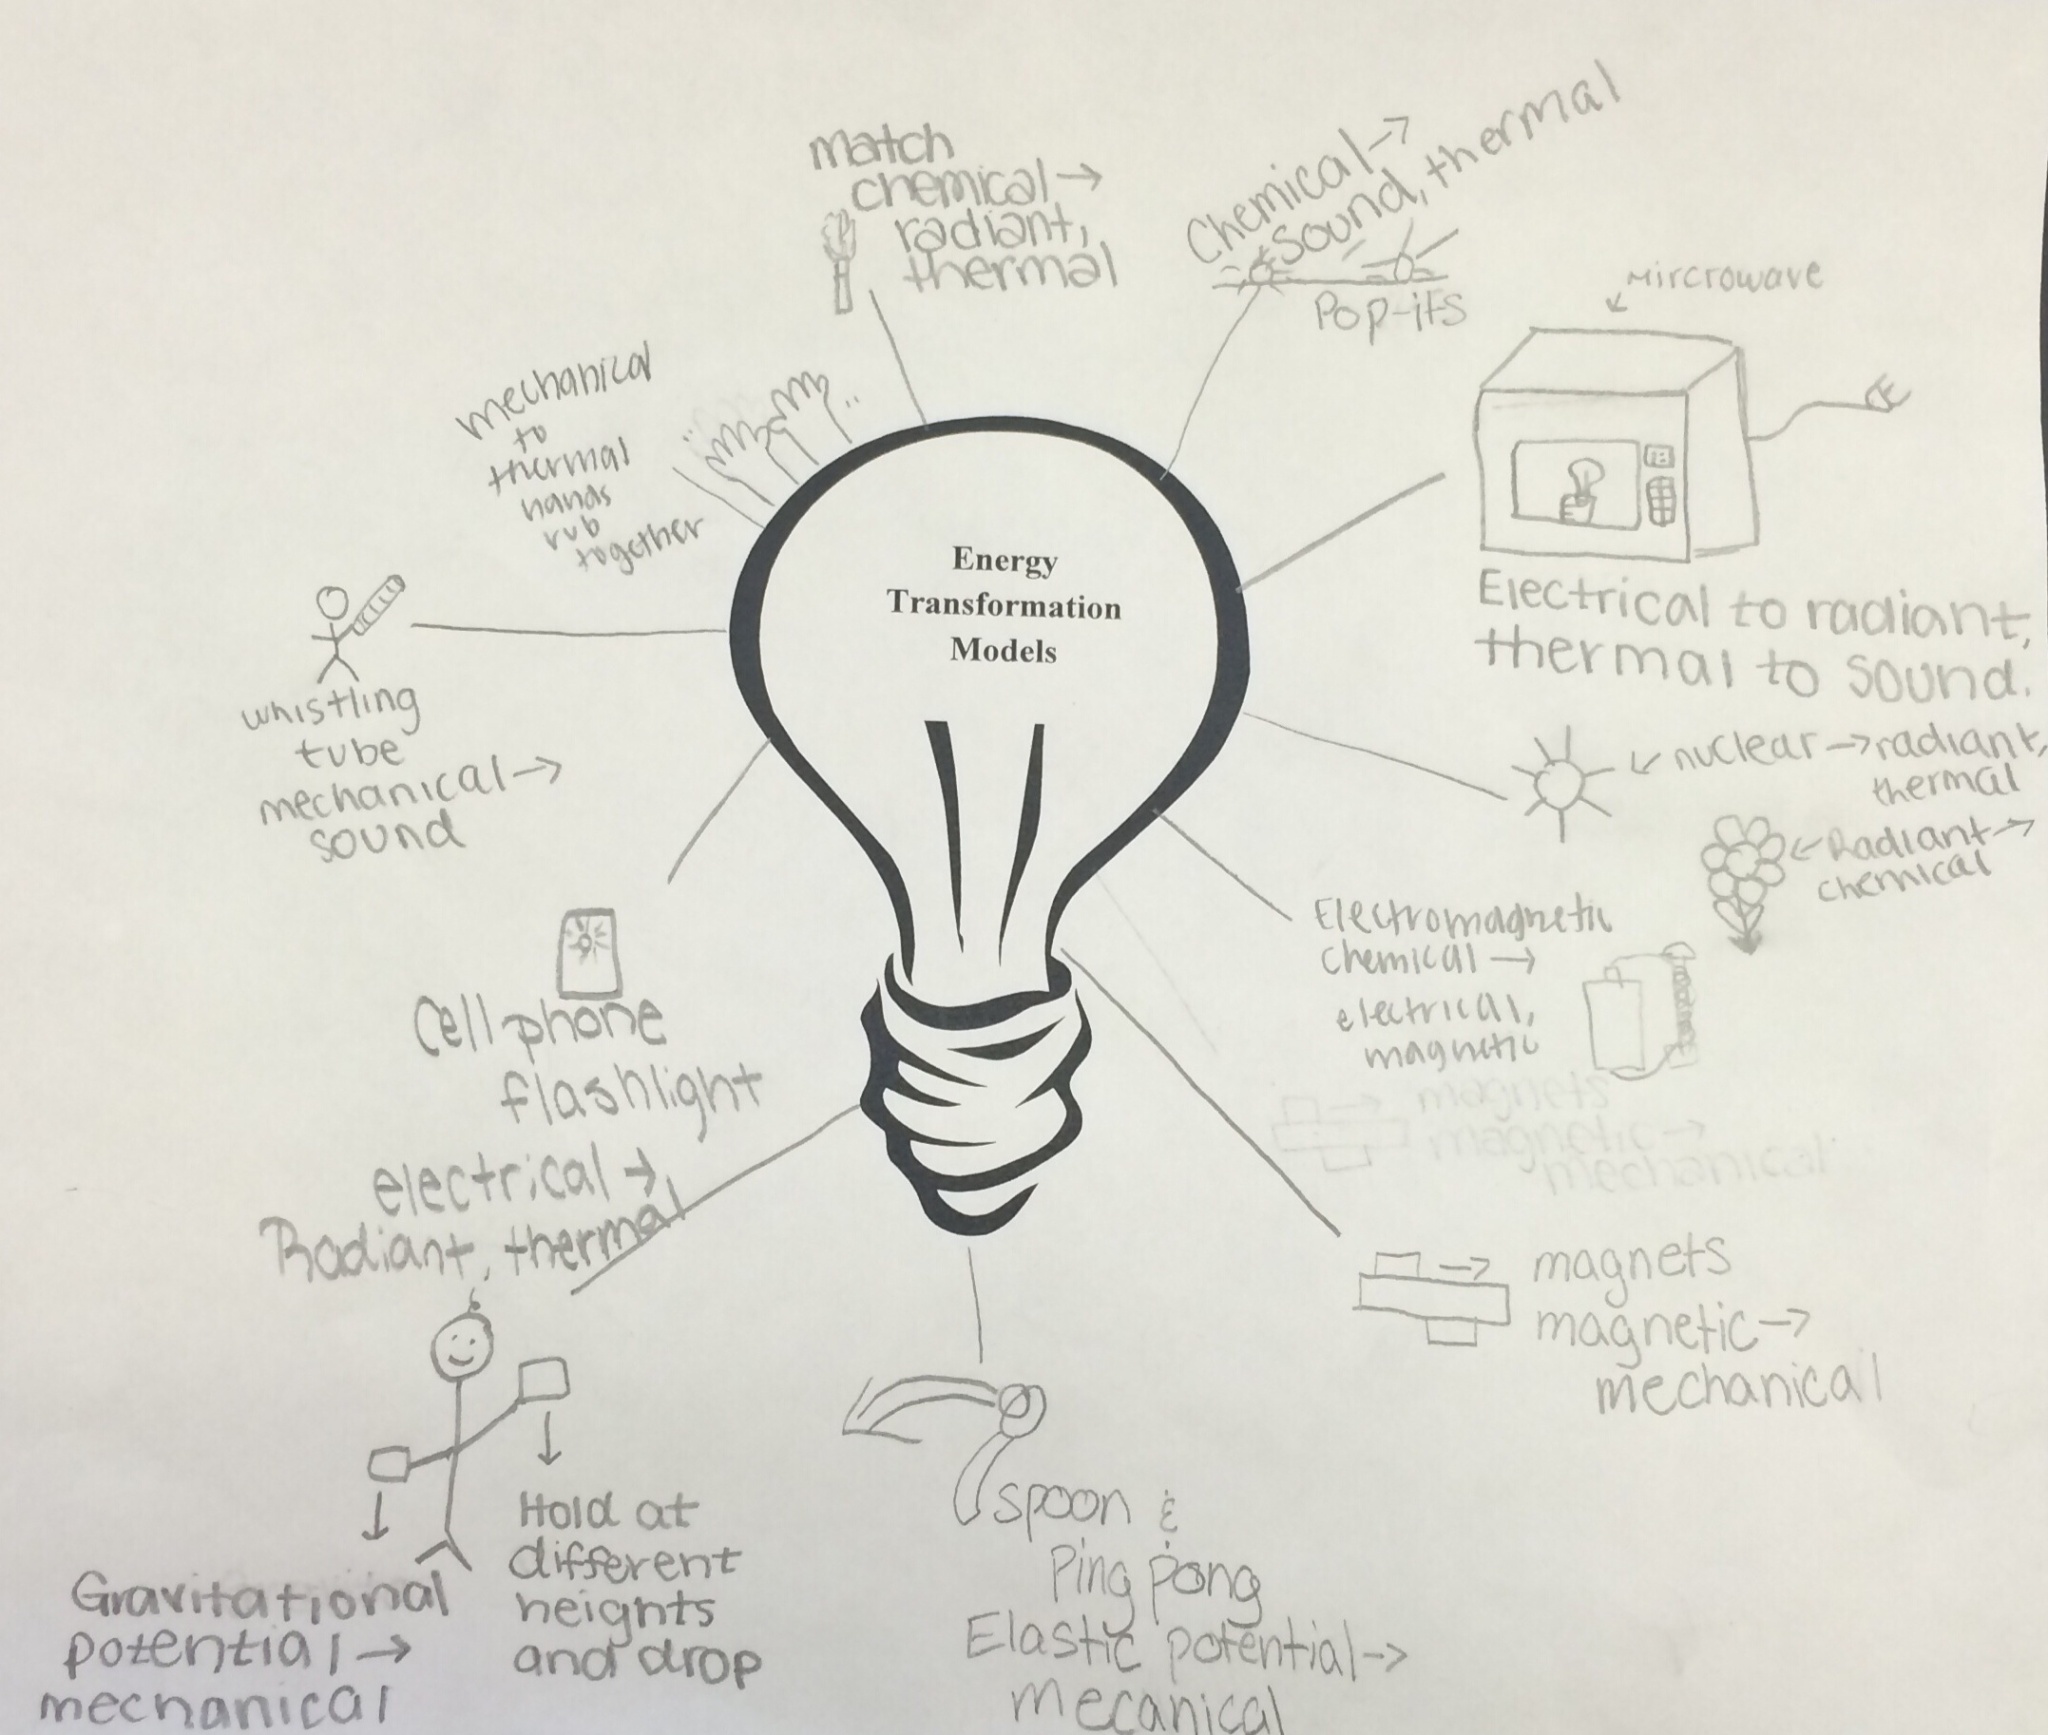 Energy
Transformation
Models
Match
chemical →
radiant,
thermal
Chemical →
sound, thermal
Pop-its
Mircrowave
Electrical to radiant,
thermal to sound.
nuclear → radiant,
thermal
Radiant →
chemical
Electromagnetic
chemical →
electrical,
magnetic
magnets
magnetic →
mechanical
magnets
magnetic →
mechanical
spoon &
Ping pong
Elastic potential →
mecanical
Hold at
different
heights
and drop
Gravitational
potential →
mechanical
Cell phone
flashlight
electrical →
Radiant, thermal
whistling
tube
mechanical →
sound
mechanical
to
thermal
hands
rub
together